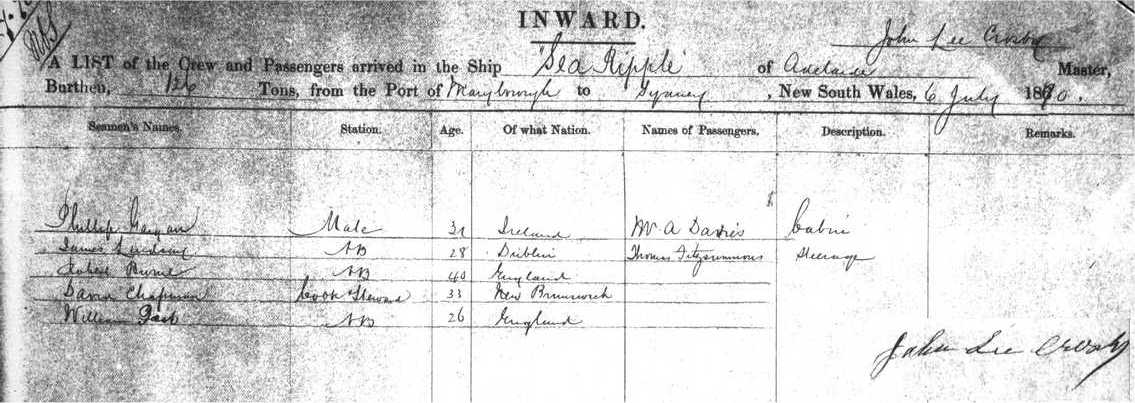 INWARD.
John Lee Crosby
A LIST of the Crew and Passengers arrived in the Ship "Sea Ripple" of Adelaide Master,
Burthen, 126 Tons, from the Port of Maryborough to Sydney, New South Wales, 6 July 1870.
Seamen's Names. Station. Age. Of what Nation. Names of Passengers. Description. Remarks.
Phillip Mate 31 Ireland Mr A Davies Cabin
James Lindsay AB 28 Dublin Thomas Fitzsimmons Steerage
Robert AB 40 England
David Chapman Cook Steward 33 New Brunswick
William AB 26 England
John Lee Crosby